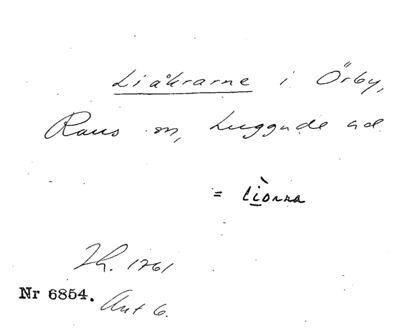 Liåkrarne i Örby,
Raus sn, Luggude hd
= lìonna
Lh. 1761
Nr 6854. Ant 6.